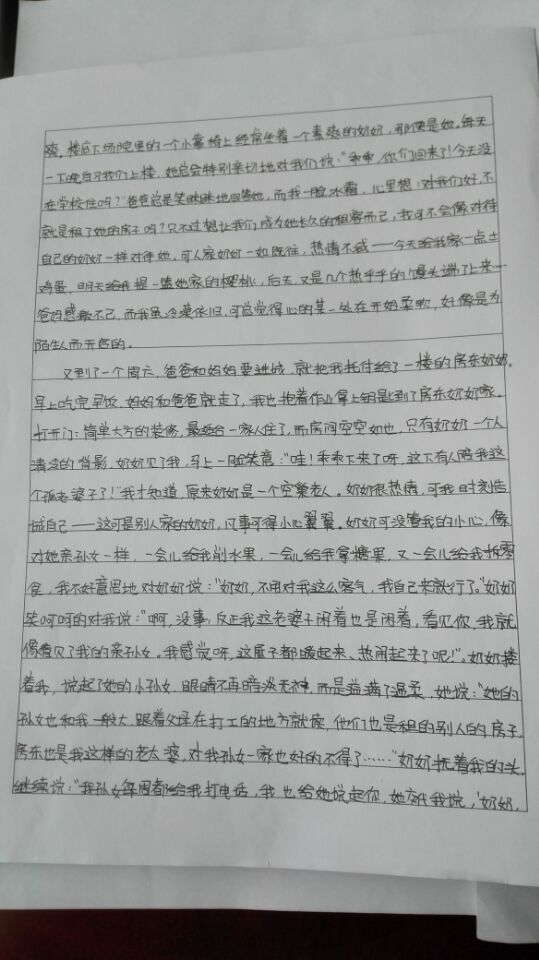 爽。楼底下场院里的一个小靠椅上经常坐着一个素爽的奶奶，那便是她。每天
一下晚自习我们上楼，她总会特别亲切地对我们说："乖乖，你们回来了！今天没
在学校住吗？"爸爸总是笑眯眯地回答她，而我一脸冰霜，心里想：对我们好，不
就是租了她的房子吗？只不过想让我们成为她长久的租客而己，我可不会像对待
自己的奶奶一样对待她。可人家奶奶一如既往，热情不减——今天给我家一点土
鸡蛋，明天给我提一篮她家的樱桃，后天，又是几个热乎乎的馒头端了上来……
爸妈感激不己，而我虽冷漠依旧，可总觉得心的某一处在开始柔软，好像是为
陌生人而开启的。
又到了一个周六，爸爸和妈妈要进城，就把我托付给了一楼的房东奶奶。
早上吃完早饭，妈妈和爸爸就走了，我也抱着作业拿上钥匙到了房东奶奶家。
打开门：简单大方的装修，最适合一家人住了，而房间空空如也，只有奶奶一个人
清凌的背影。奶奶见了我，马上一脸笑意："哇！乖乖下来了呀，这下有人陪我这
个孤老婆子了！"我才知道，原来奶奶是一个空巢老人。奶奶很热情，可我时刻告
诫自己——这可是别人家的奶奶，凡事可得小心翼翼。奶奶可没管我的小心，像
对她亲孙女一样，一会儿给我削水果，一会儿给我拿糖果，又一会儿给我拆零
食，我不好意思地对奶奶说："奶奶，不用对我这么客气，我自己来就行了。"奶奶
笑呵呵的对我说："啊，没事，反正我这老婆子闲着也是闲着，看见你，我就
像看见了我的亲孙女。我感觉呀，这屋子都暖起来、热闹起来了呢！"。奶奶搂
着我，说起了她的小孙女，眼睛不再暗淡无神，而是溢满了温柔，她说："她的
孙女也和我一般大，跟着父母在打工的地方就读，他们也是租的别人的房子。
房东也是我这样的老太婆，对我孙女一家也好的不得了……"奶奶抚着我的头，
继续说："我孙女每周都给我打电话，我也给她说起你，她就我说，'奶奶，